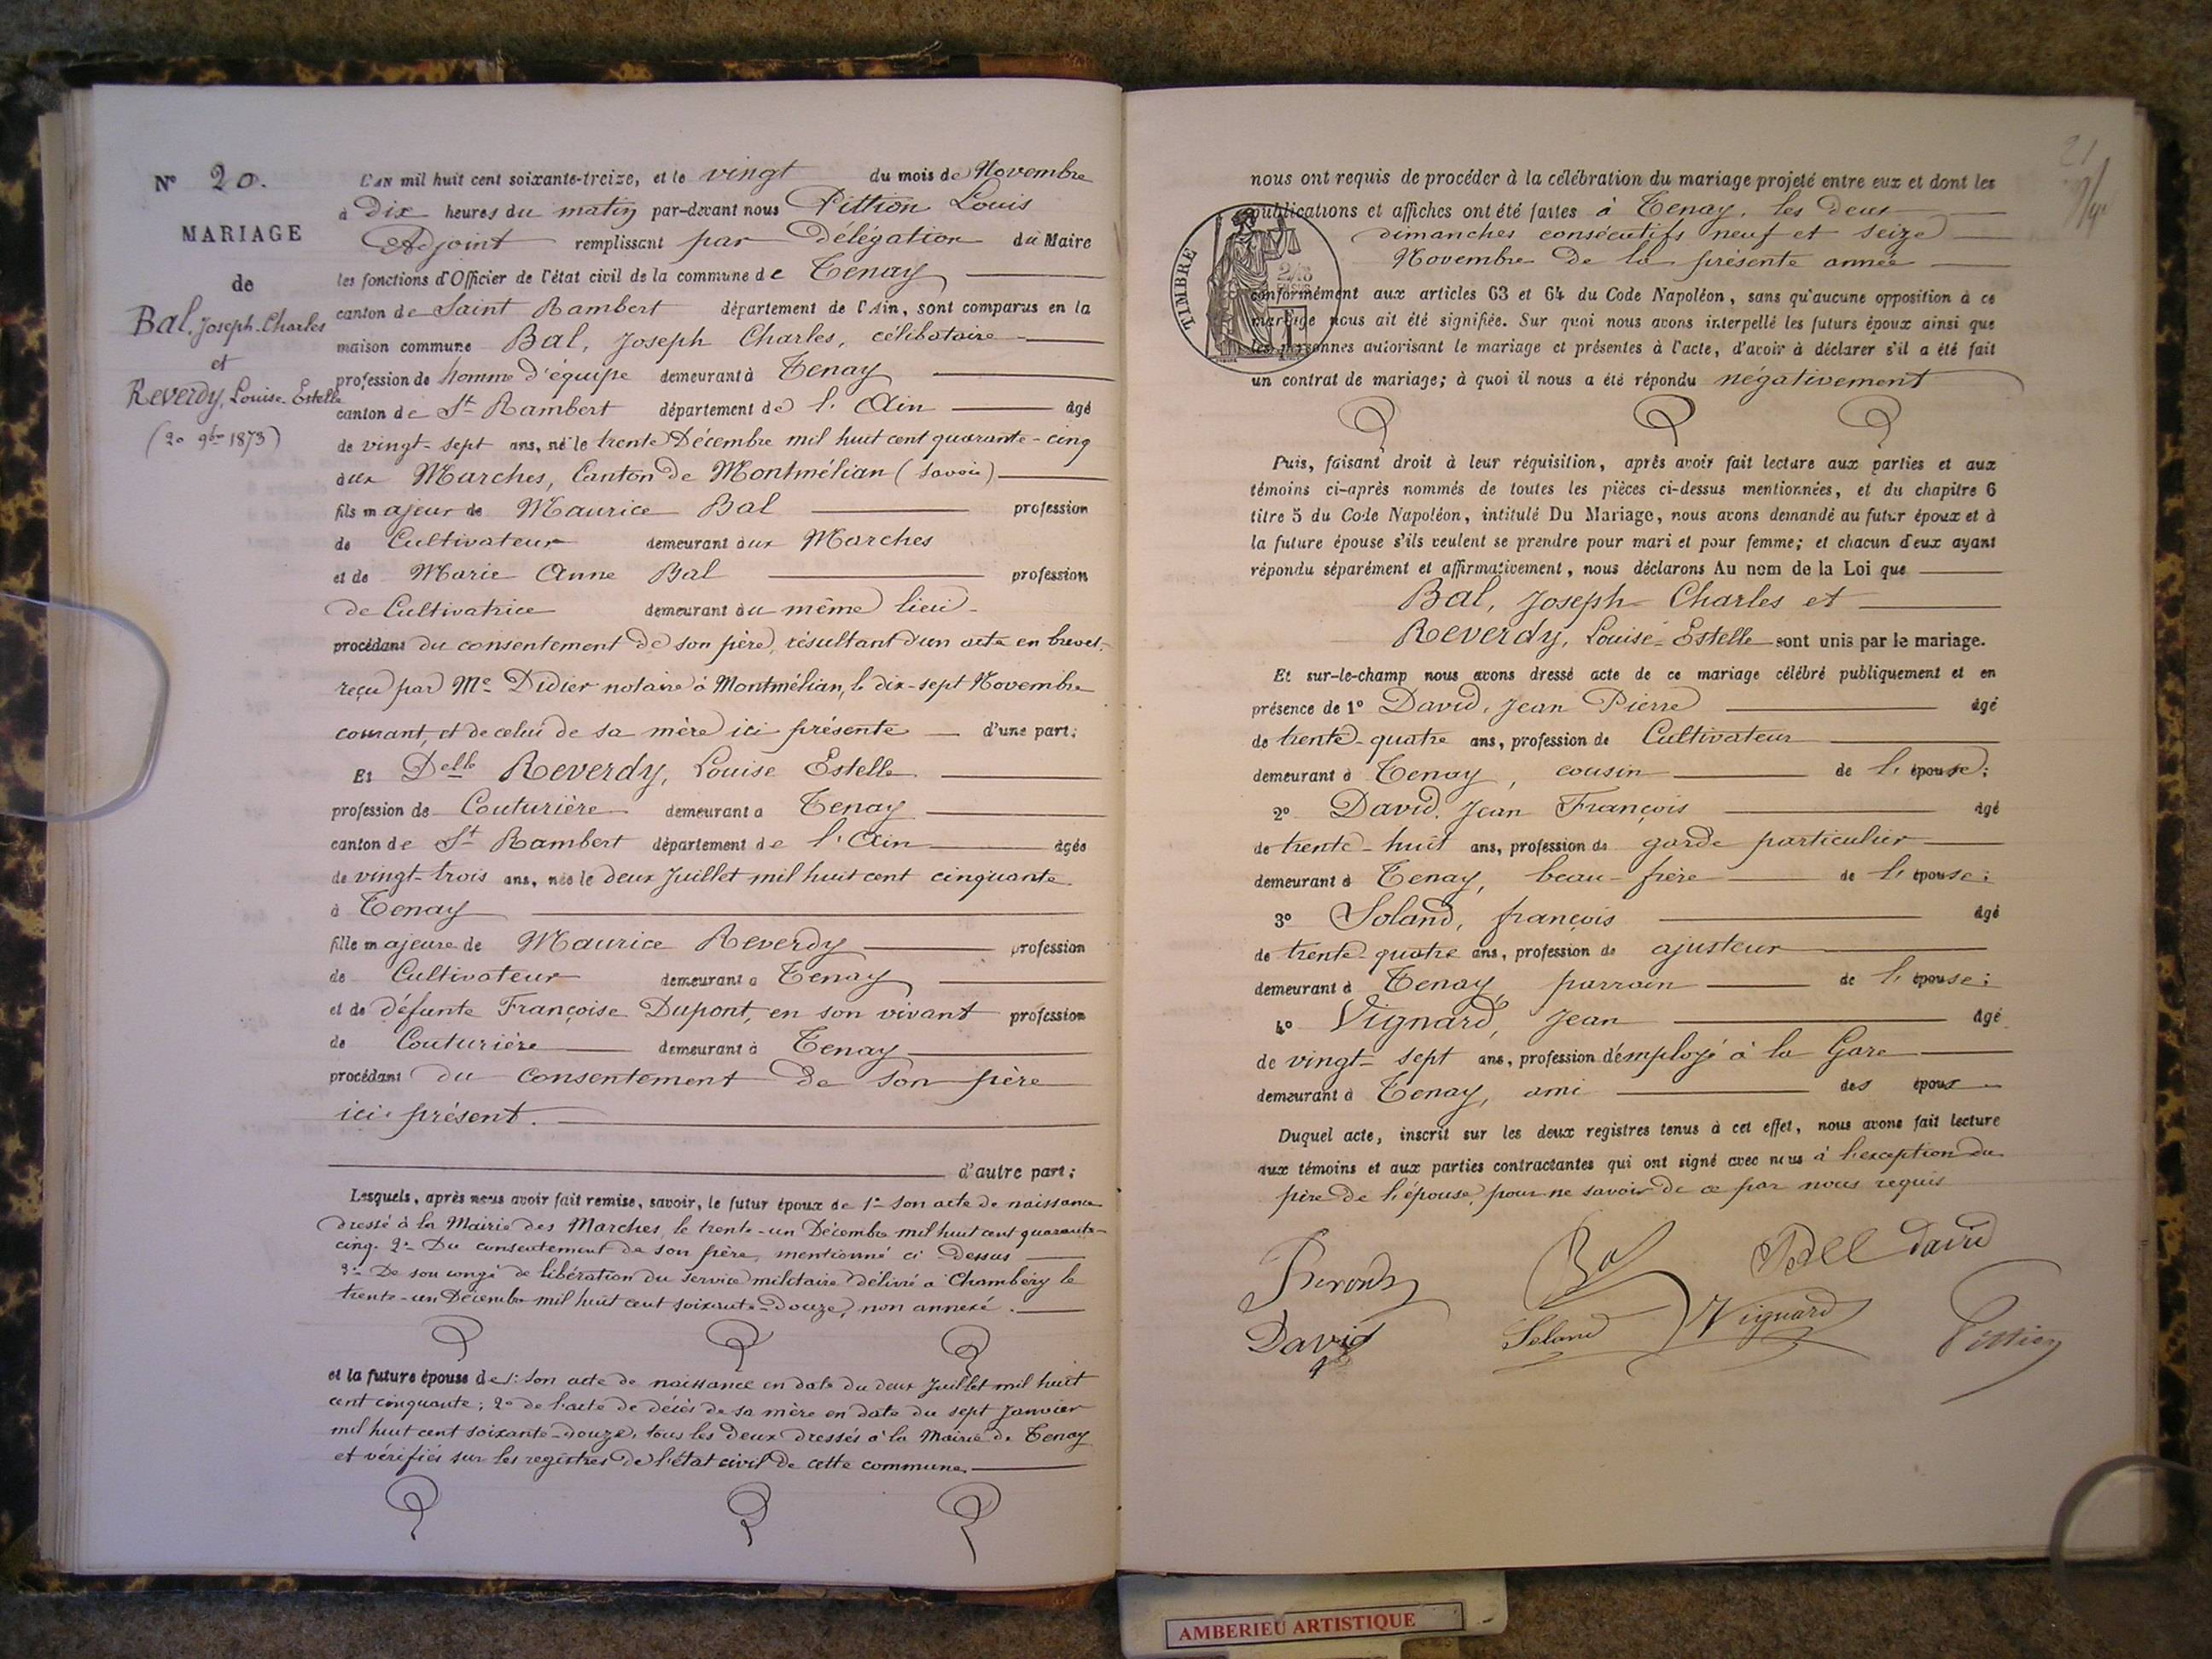 N° 20.
MARIAGE
de
Bal, Joseph-Charles
et
Reverdy, Louise-Estelle
(20 9bre 1873)
L'AN mil huit cent soixante-treize, et le vingt du mois de Novembre
à Dix heures du matin par-devant nous Pittion Louis
Adjoint remplissant par Délégation du Maire
les fonctions d'Officier de l'état civil de la commune de Tenay
canton de Saint Rambert département de l'Ain, sont comparus en la
maison commune Bal, Joseph Charles, célibataire
profession de homme d'équipe demeurant à Tenay
canton de St Rambert département de l'Ain âgé
de vingt-sept ans, né le trente Décembre mil huit cent quarante-cinq
aux Marches, Canton de Montmélian (Savoie)
fils majeur de Maurice Bal profession
de Cultivateur demeurant aux Marches
et de Marie Anne Bal profession
de Cultivatrice demeurant au même lieu
procédant du consentement de son père, résultant d'un acte en brevet,
reçu par Me Didier notaire à Montmélian, le dix-sept Novembre
courant, et de celui de sa mère ici présente d'une part;
Et Delle Reverdy, Louise Estelle
profession de Couturière demeurant à Tenay
canton de St Rambert département de l'Ain âgée
de vingt-trois ans, née le deux Juillet mil huit cent cinquante
à Tenay
fille majeure de Maurice Reverdy profession
de Cultivateur demeurant à Tenay
et de défunte Françoise Dupont, en son vivant profession
de Couturière demeurant à Tenay
procédant du consentement de son père
ici présent.
d'autre part;
Lesquels, après nous avoir fait remise, savoir, le futur époux de 1° son acte de naissance
dressé à la Mairie des Marches, le trente-un Décembre mil huit cent quarante-
cinq. 2° Du consentement de son père, mentionné ci Dessus
3° De son congé de libération du service militaire délivré à Chambéry le
trente-un Décembre mil huit cent soixante-douze, non annexé.
et la future épouse de 1° son acte de naissance en date du deux Juillet mil huit
cent cinquante; 2° de l'acte de décès de sa mère en date du sept Janvier
mil huit cent soixante-douze, tous les deux dressés à la Mairie de Tenay
et vérifiés sur les registres de l'état civil de cette commune.
21
nous ont requis de procéder à la célébration du mariage projeté entre eux et dont les
publications et affiches ont été faites à Tenay, les deux
dimanches consécutifs neuf et seize
Novembre de la présente année
TIMBRE
conformément aux articles 63 et 64 du Code Napoléon, sans qu'aucune opposition à ce
mariage nous ait été signifiée. Sur quoi nous avons interpellé les futurs époux ainsi que
les personnes autorisant le mariage et présentes à l'acte, d'avoir à déclarer s'il a été fait
un contrat de mariage; à quoi il nous a été répondu négativement
Puis, faisant droit à leur réquisition, après avoir fait lecture aux parties et aux
témoins ci-après nommés de toutes les pièces ci-dessus mentionnées, et du chapitre 6
titre 5 du Code Napoléon, intitulé Du Mariage, nous avons demandé au futur époux et à
la future épouse s'ils veulent se prendre pour mari et pour femme; et chacun d'eux ayant
répondu séparément et affirmativement, nous déclarons Au nom de la Loi que
Bal, Joseph Charles et
Reverdy, Louise-Estelle sont unis par le mariage.
Et sur-le-champ nous avons dressé acte de ce mariage célébré publiquement et en
présence de 1° David, Jean Pierre âgé
de trente-quatre ans, profession de Cultivateur
demeurant à Tenay, cousin de l'épouse;
2° David, Jean François âgé
de trente-huit ans, profession de garde particulier
demeurant à Tenay, beau-frère de l'épouse;
3° Soland, françois âgé
de trente-quatre ans, profession de ajusteur
demeurant à Tenay, parrain de l'épouse;
4° Vignard, Jean âgé
de vingt-sept ans, profession d'employé à la Gare
demeurant à Tenay, ami des époux
Duquel acte, inscrit sur les deux registres tenus à cet effet, nous avons fait lecture
aux témoins et aux parties contractantes qui ont signé avec nous à l'exception du
père de l'épouse, pour ne savoir de ce par nous requis
Reverdy Bal Bal David
David Soland Vignard Pittion
AMBERIEU ARTISTIQUE